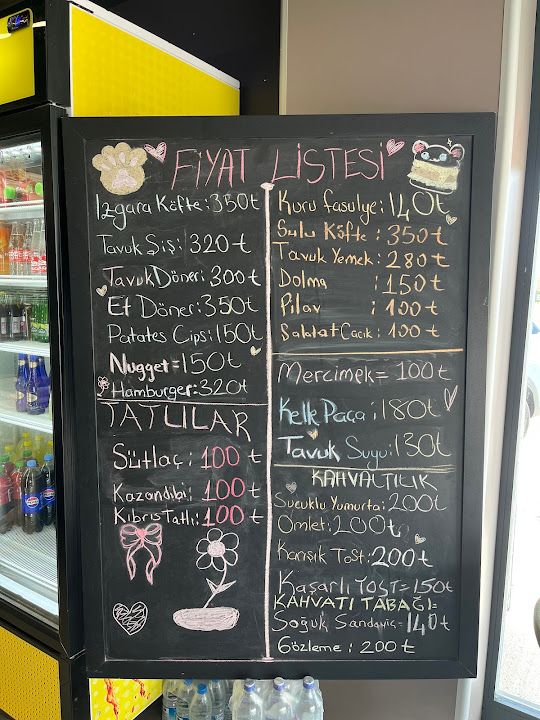 FİYAT LİSTESİ
Izgara Köfte: 350t
Tavuk Şiş: 320t
Tavuk Döner: 300t
Et Döner: 350t
Patates Cips: 150t
Nugget=150t
Hamburger: 320t
TATLILAR
Sütlaç: 100t
Kazandibi: 100t
Kıbrıs Tatlı: 100t
Kuru fasulye: 140t
Sulu Köfte: 350t
Tavuk Yemek: 280t
Dolma : 150t
Pilav : 100t
Salata+Cacık : 100t
Mercimek= 100t
Kelle Paça: 180t
Tavuk Suyu: 130t
KAHVALTILIK
Sucuklu Yumurta: 200t
Omlet: 200t
Karışık Tost: 200t
Kaşarlı TOST= 150t
KAHVATI TABAĞI=
Soğuk Sandaviç= 140t
Gözleme : 200t